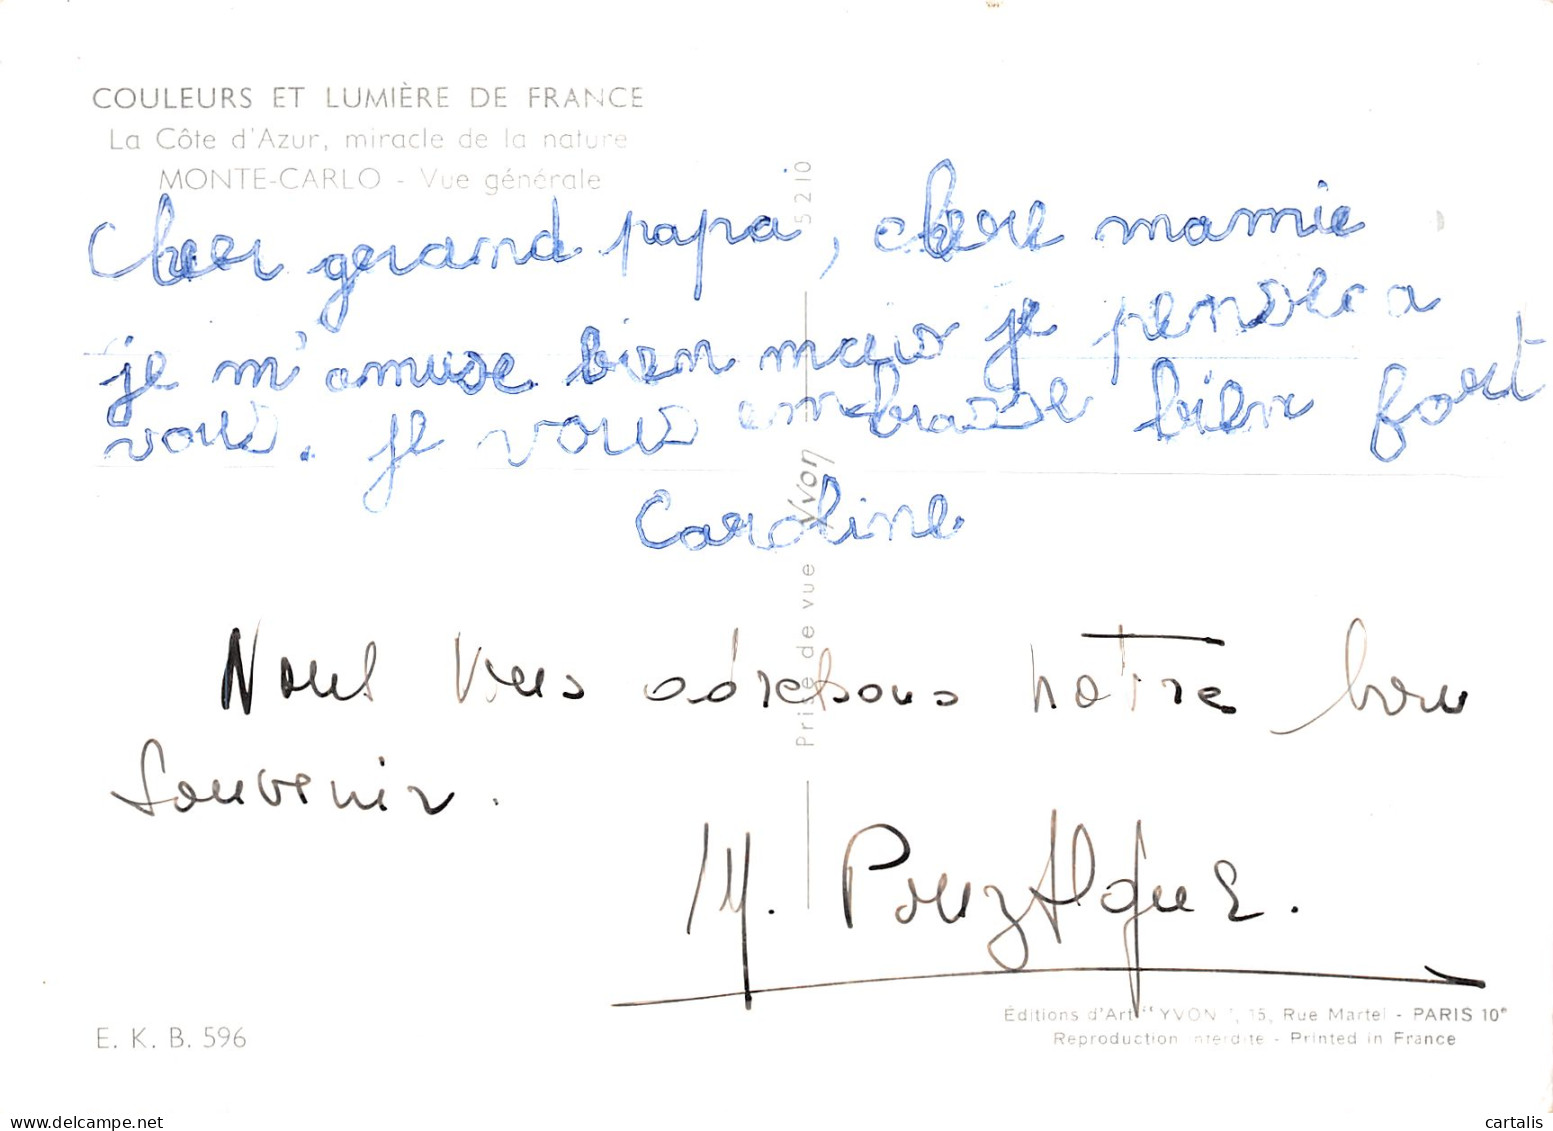 COULEURS ET LUMIÈRE DE FRANCE
La Côte d'Azur, miracle de la nature
MONTE-CARLO - Vue générale
Cher grand papa, chere mamie
je m'amuse bien mais je penser a
vous. je vous embrasse bien fort
Caroline
Prise de vue Yvon 15210
Nous vous adressons notre bon
souvenir.
M.
E. K. B. 596
Éditions d'Art "YVON", 15, Rue Martel - PARIS 10e
Reproduction interdite - Printed in France
delcampe.net
cartalis